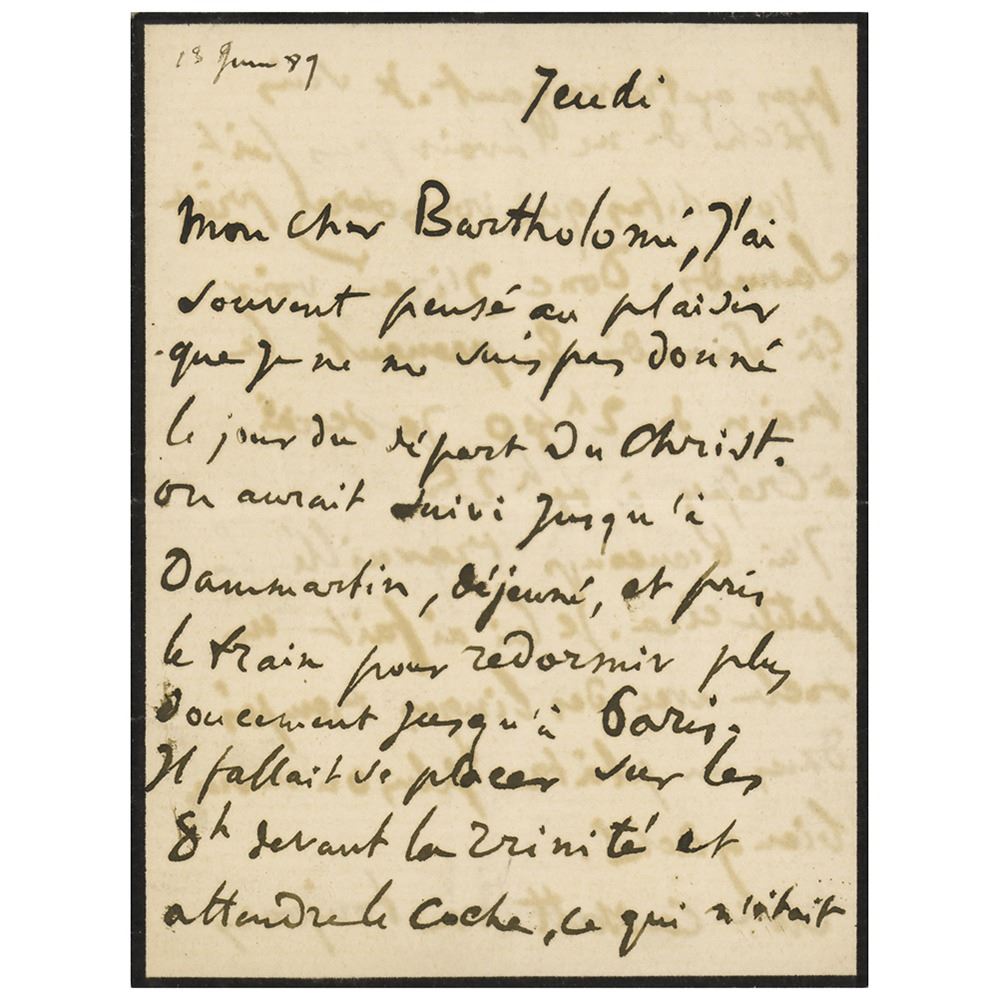 13 Juin 89
Jeudi
Mon cher Bartholomé, J'ai
souvent pensé au plaisir
que Je ne me suis pas donné
le jour du départ du Christ.
on aurait suivi Jusqu'à
Dammartin, déjeuné, et pris
le train pour redormir plus
doucement Jusqu'à Paris.
Il fallait se placer sur les
8h devant la Trinité et
attendre le Coche, ce qui n'était